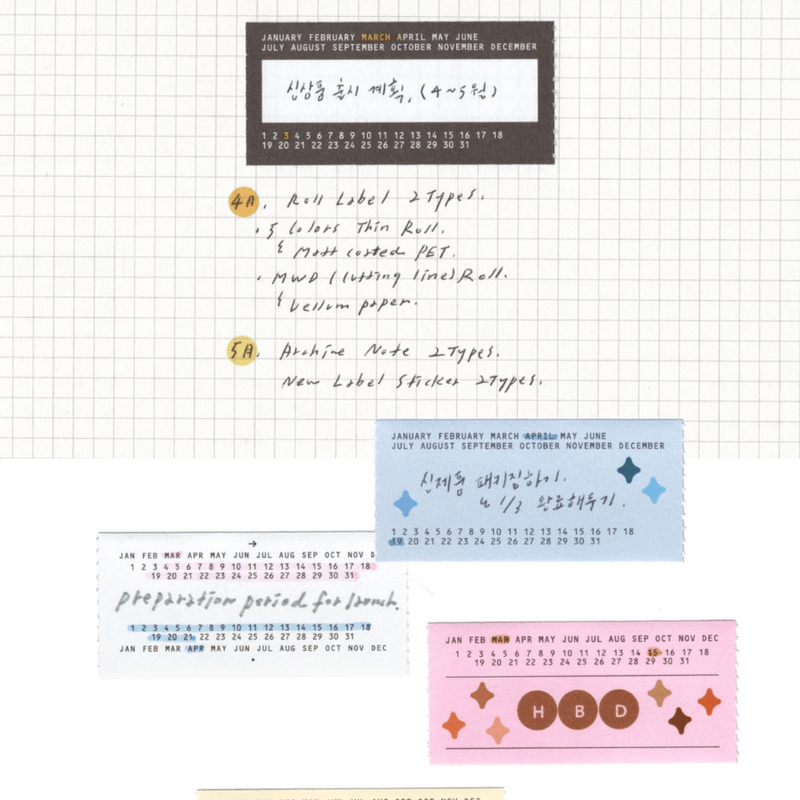 JANUARY FEBRUARY MARCH APRIL MAY JUNE
JULY AUGUST SEPTEMBER OCTOBER NOVEMBER DECEMBER
신상품 출시 계획. (4~5월)
1 2 3 4 5 6 7 8 9 10 11 12 13 14 15 16 17 18
19 20 21 22 23 24 25 26 27 28 29 30 31
4A. Roll Label 2Types.
· 5 Colors Thin Roll.
{ Matt coated PET.
· MWD (Cutting line) Roll.
{ Vellum paper.
5A. Archive Note 2Types.
New Label Sticker 2Types.
JANUARY FEBRUARY MARCH APRIL MAY JUNE
JULY AUGUST SEPTEMBER OCTOBER NOVEMBER DECEMBER
신제품 패키징하기.
1/3 완료해두기.
1 2 3 4 5 6 7 8 9 10 11 12 13 14 15 16 17 18
19 20 21 22 23 24 25 26 27 28 29 30 31
JAN FEB MAR APR MAY JUN JUL AUG SEP OCT NOV
1 2 3 4 5 6 7 8 9 10 11 12 13 14 15 16 17 18
19 20 21 22 23 24 25 26 27 28 29 30 31
preparation period for launch.
1 2 3 4 5 6 7 8 9 10 11 12 13 14 15 16 17 18
19 20 21 22 23 24 25 26 27 28 29 30 31
JAN FEB MAR APR MAY JUN JUL AUG SEP OCT NOV DEC
JAN FEB MAR APR MAY JUN JUL AUG SEP OCT NOV DEC
1 2 3 4 5 6 7 8 9 10 11 12 13 14 15 16 17 18
19 20 21 22 23 24 25 26 27 28 29 30 31
H B D